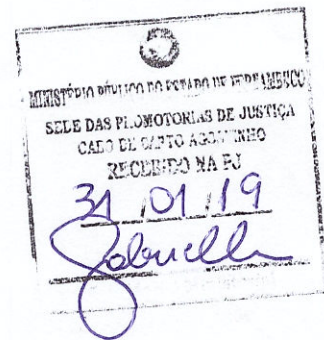 MINISTÉRIO PÚBLICO DO ESTADO DE PERNAMBUCO
SEDE DAS PROMOTORIAS DE JUSTIÇA
CABO DE SANTO AGOSTINHO
RECEBIDO NA PJ
31/01/19
Gabriella